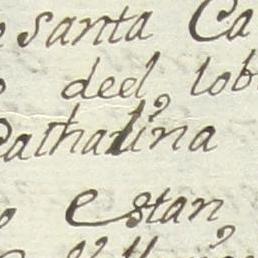 santa Ca
deel, lob
Cathalina
Estan,